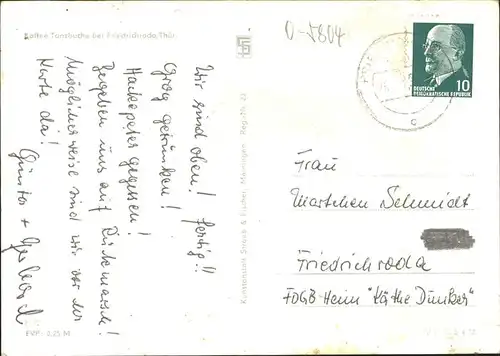 Kaffee Tanzbuche bei Friedrichroda, Thür.
0-5804
DEUTSCHE
DEMOKRATISCHE REPUBLIK 10
Wir sind oben! fertig!!
Grog getrunken!
Hackepeter gegessen!
Begeben uns auf Rückmarsch!
Möglicherweise sind wir vor der
Karte da!
Günter + Gerhard
Frau
Martchen Schmidt
Friedrichroda
FDGB-Heim "Käthe Dunker"
Konstanze Straub & Fischer, Meiningen Reg.-Nr. 22
EVP: 0,25 M